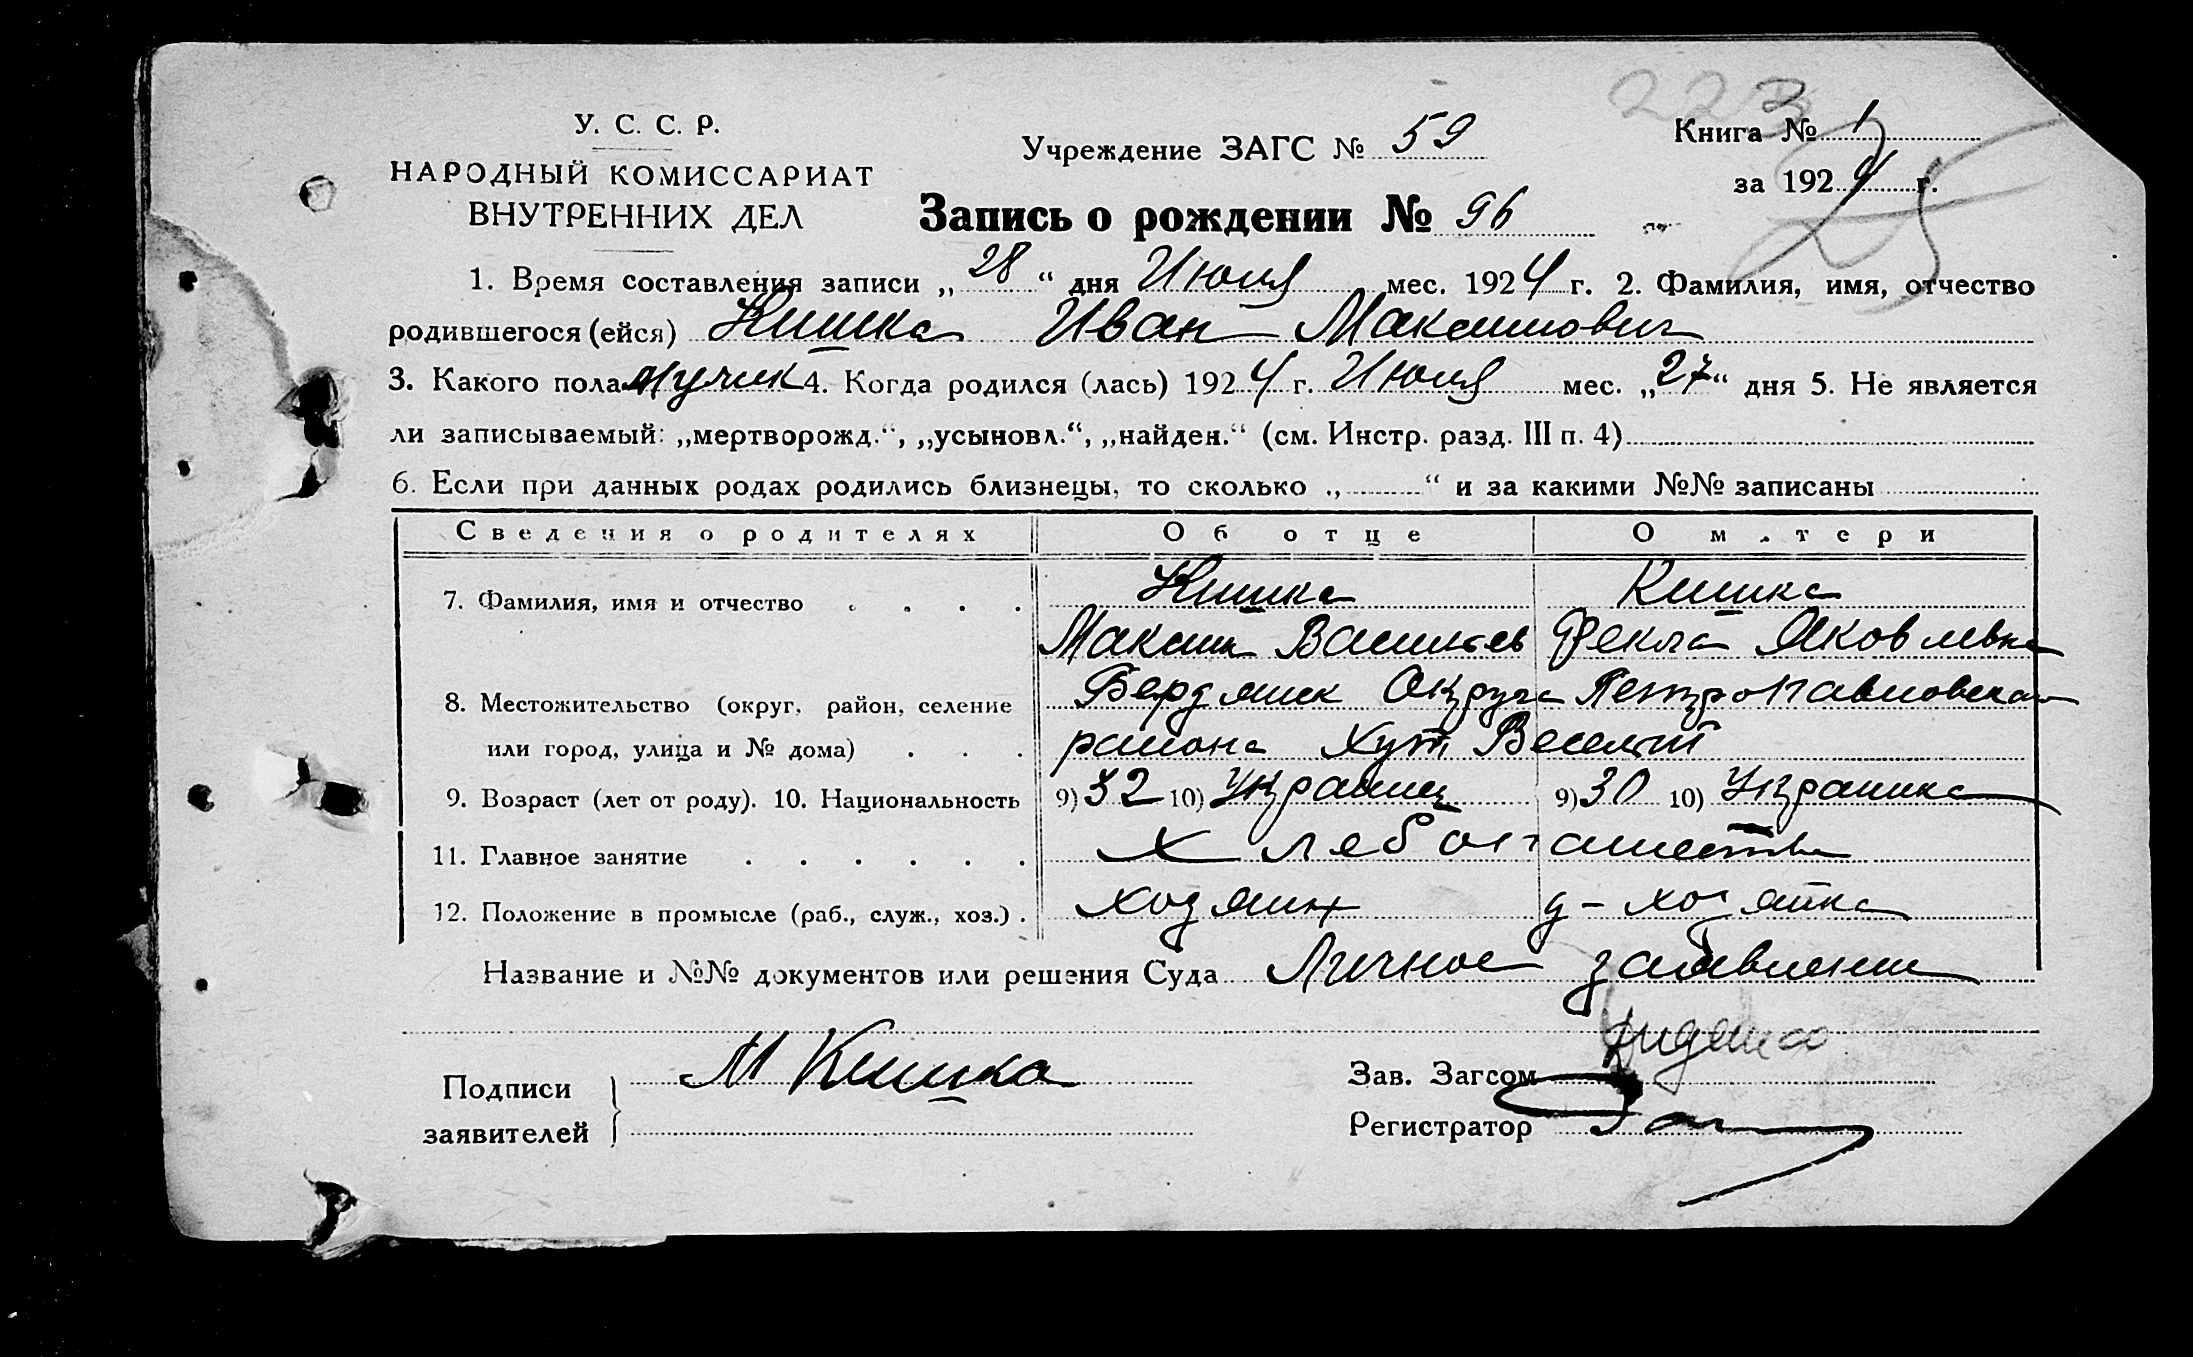 223
25
У. С. С. Р.
НАРОДНЫЙ КОМИССАРИАТ
ВНУТРЕННИХ ДЕЛ
Учреждение ЗАГС № 59
Книга № 1
за 1924 г.
Запись о рождении № 96
1. Время составления записи „28“ дня Июля мес. 1924 г. 2. Фамилия, имя, отчество
родившегося (ейся) Кишка Иван Максимович
3. Какого пола мужск 4. Когда родился (лась) 1924 г. Июля мес. „27“ дня 5. Не является
ли записываемый: „мертворожд.“, „усыновл.“, „найден.“ (см. Инстр. разд. III п. 4)
6. Если при данных родах родились близнецы, то сколько „ “ и за какими №№ записаны
Сведения о родителях Об отце О м.тери
7. Фамилия, имя и отчество Кишка Кишка
Максим Васильев Фекла Яковлевна
8. Местожительство (округ, район, селение Бердянск Округа Петропавловского
или город, улица и № дома) района Хут Веселый
9. Возраст (лет от роду). 10. Национальность 9) 32 10) Украинец 9) 30 10) Украинка
11. Главное занятие Хлебопашество
12. Положение в промысле (раб., служ., хоз.) хозяин д-хозяйка
Название и №№ документов или решения Суда Личное заявление
Подписи
заявителей
М Кишка
Зав. Загсом
Регистратор